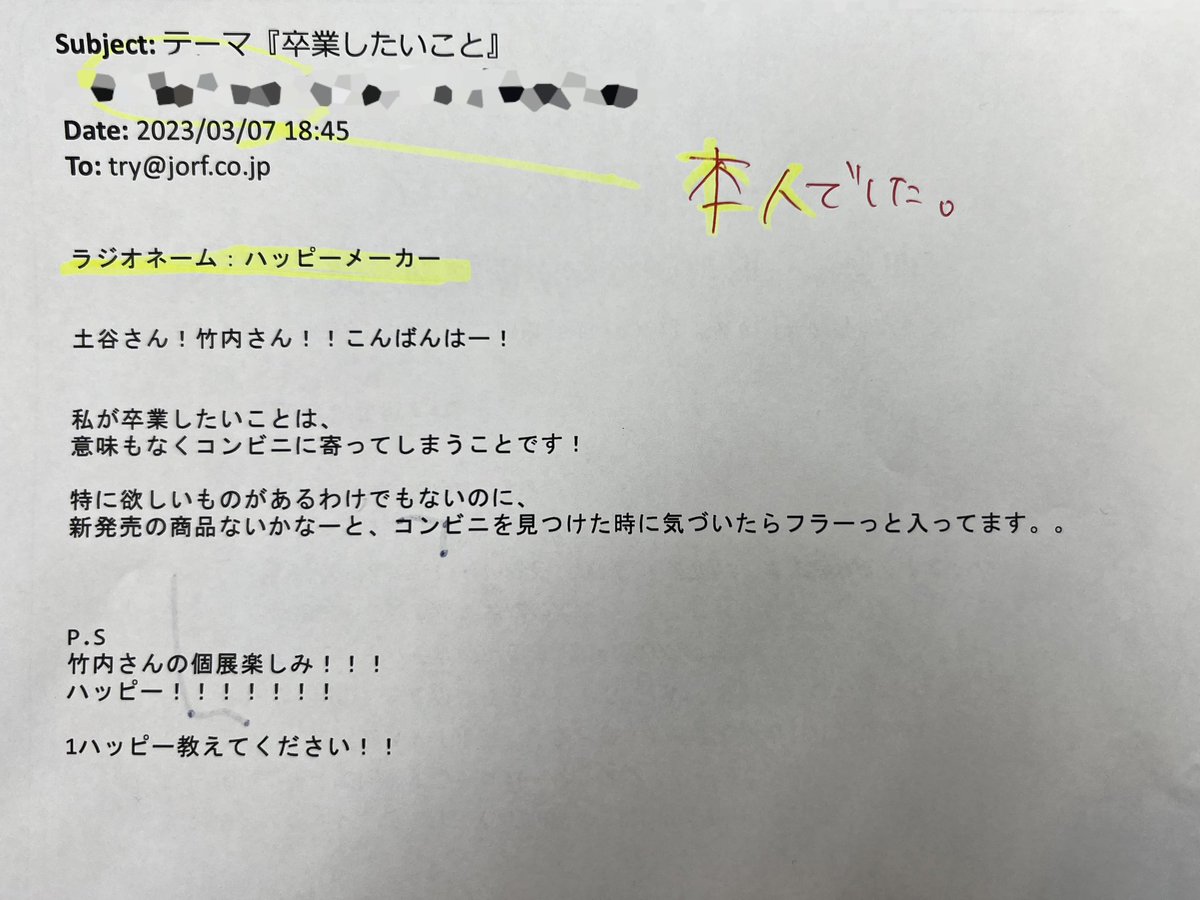 Subject: テーマ『卒業したいこと』
Date: 2023/03/07 18:45
To: try@jorf.co.jp
本人でした。
ラジオネーム：ハッピーメーカー
土谷さん！竹内さん！！こんばんはー！
私が卒業したいことは、
意味もなくコンビニに寄ってしまうことです！
特に欲しいものがあるわけでもないのに、
新発売の商品ないかなーと、コンビニを見つけた時に気づいたらフラーっと入ってます。。
P.S
竹内さんの個展楽しみ！！！
ハッピー！！！！！！！
1ハッピー教えてください！！